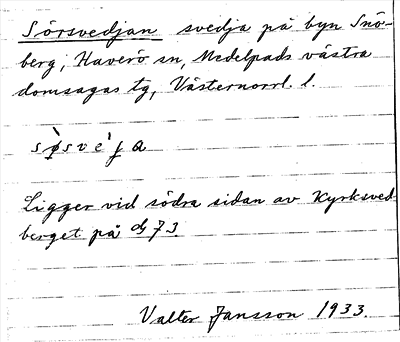 Sörsvedjan svedja på byn Snö-
berg, Haverö sn, Medelpads västra
domsagas tg, Västernorrl. l.
sø̀sve̍ja
Ligger vid södra sidan av Kyrksved-
berget på dj 73
Valter Jansson 1933.